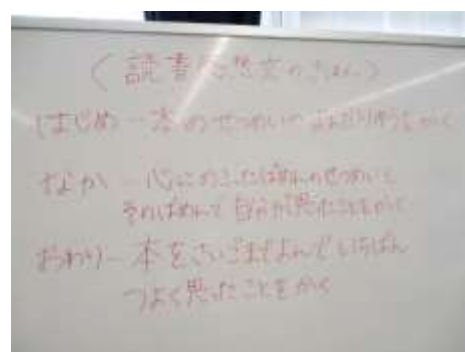 〈読書感想文のきほん〉
はじめ－本のせつめいや よんだりゆうをかく
なか－心にのこったばめんのせつめいと
そのばめんで自分が思ったことをかく
おわり－本をさいごまでよんでいちばん
つよく思ったことをかく